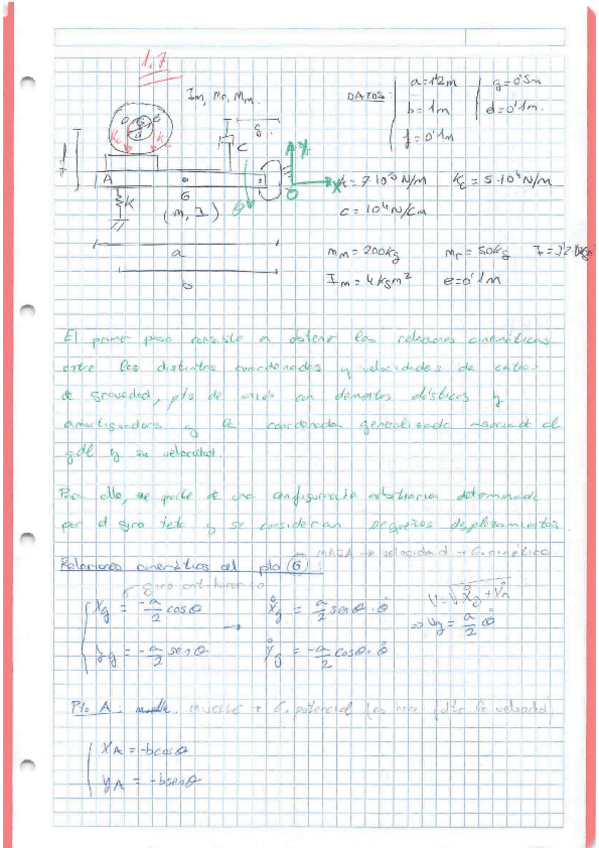 1.7
Im, mr, Mm.
DATOS
a = 1'2m
b = 1m
f = 0'1m
g = 0'5m
d = 0'1m.
C
A
K
G
(m, I)
θ
O
X
a
b
c = 10⁴ N/cm
mm = 200kg
mr = 50kg
Im = 4kgm²
e = 0'1m
El primer paso consiste en obtener las relaciones cinemáticas
entre las distintas coordenadas y velocidades de centros
de gravedad, ptos de unión con elementos elásticos y
amortiguadores y la coordenada generalizada asociada al
gdl y su velocidad.
Para ello, se parte de una configuración arbitraria determinada
por el giro teta y se consideran pequeños desplazamientos.
MASA → velocidad → E. cinética
Relaciones cinemáticas del pto G:
giro antihorario
Xg = -a/2 cosθ → Ẋg = a/2 senθ · θ̇
yg = -a/2 senθ ẏg = -a/2 cosθ · θ̇
⇒ vg = a/2 θ̇
Pto A: muelle → E. potencial (no hace falta la velocidad)
XA = -bcosθ
yA = -bsenθ